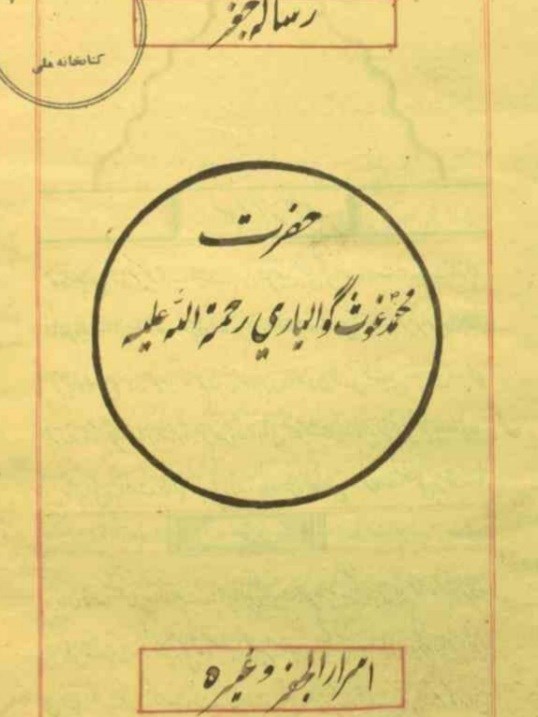 رساله جفر
کتابخانه ملی
حضرت
محمد غوث گوالیاري رحمة الله علیه
اسرار الجفر وغیره